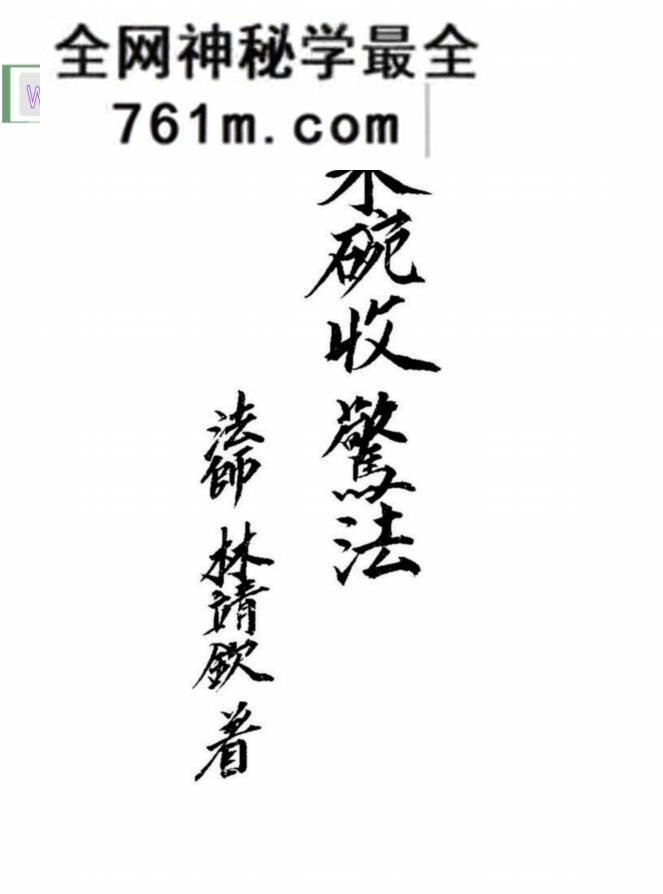 全网神秘学最全
761m.com
W
米碗收驚法
法師 林靖欽 着